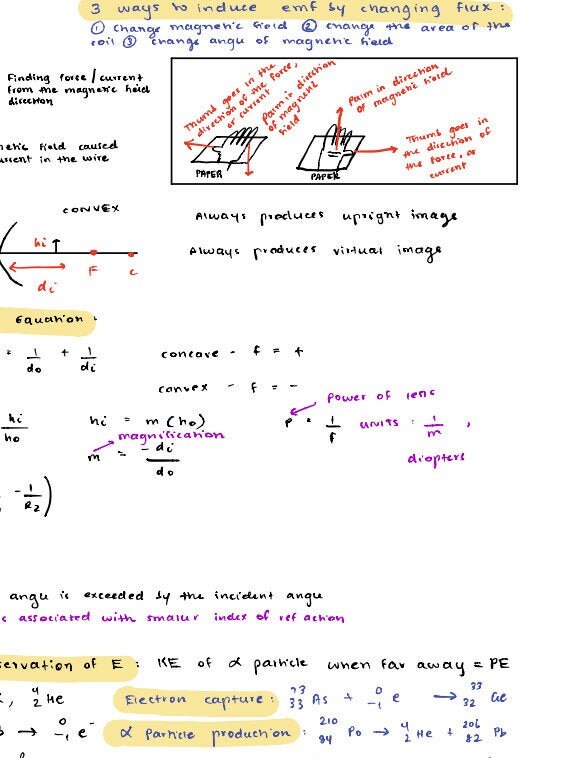 3 ways to induce emf by changing flux :
① change magnetic field ② change the area of the
coil ③ change angle of magnetic field
Finding force / current
from the magnetic field
direction
Thumb goes in the
direction of the force,
or current
Palm in direction
of magnetic
field
PAPER
Palm in direction
of magnetic field
Thumb goes in
the direction of
the force, or
current
PAPER
netic field caused
urrent in the wire
CONVEX
Always produces upright image
Always produces virtual image
hi
F
C
di
Equation :
= 1/do + 1/di
concave - f = +
convex - f = -
hi/ho
hi = m (ho)
magnification
m = -di/do
power of lens
P = 1/f units : 1/m ,
diopters
-1/R2 )
angle is exceeded by the incident angle
associated with smaller index of refraction
servation of E : KE of α particle when far away = PE
, 4 2 He
Electron capture : 73 33 As + 0 -1 e → 33 32 Ge
→ 0 -1 e-
α Particle production : 210 84 Po → 4 2 He + 206 82 Pb